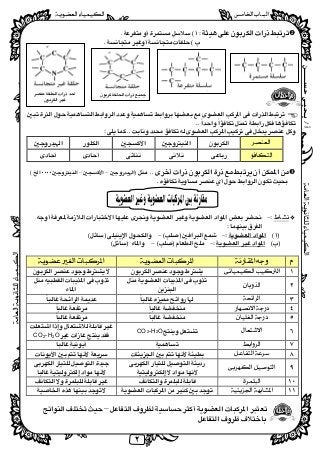 الباب الخامس
الكيمياء العضوية
ترتبط ذرات الكربون على هيئة: أ) سلاسل مستمرة أو متفرعة.
ب) حلقات متجانسة أو غير متجانسة.
سلسلة مستمرة
جميع ذرات الحلقة كربون
حلقة غير متجانسة
أحد ذرات الحلقة عنصر غير الكربون
ترتبط الذرات في المركب العضوي مع بعضها بروابط تساهمية وعدد الروابط التساهمية حول الذرة تبين
تكافؤها فكل رابطة تمثل تكافؤاً واحداً.
وكل عنصر يدخل في تركيب المركب العضوي له تكافؤ محدد وثابت.. كما يلى:
العنصر الكربون النيتروجين الأكسجين الكلور الهيدروجين
التكافؤ رباعى ثلاثى ثنائى أحادى أحادى
من الممكن أن يرتبط مع ذرة الكربون ذرات أخرى .. مثل (الهيدروجين – الأكسجين – النيتروجين ..... الخ)
بحيث تكون الروابط حول أي عنصر مساوية لتكافؤه.
مقارنة بين المركبات العضوية وغير العضوية
نشاط :- نحضر بعض المواد العضوية وغير العضوية ونجرى عليها الاختبارات اللازمة لمعرفة أوجه
الفرق بينهما:
(أ) المواد العضوية :- شمع البرافين (صلب) – والكحول الإيثيلى (سائل)
(ب) المواد غير العضوية :- ملح الطعام (صلب) – والماء (سائل)
م وجه المقارنة المركبات العضوية المركبات الغير عضوية
١ التركيب الكيميائى يشترط وجود عنصر الكربون لا يشترط وجود عنصر الكربون
٢ الذوبان تذوب فى المذيبات العضوية مثل البنزين تذوب فى المذيبات القطبية مثل الماء
٣ الرائحة لها روائح مميزة غالباً عديمة الرائحة غالباً
٤ درجة الانصهار منخفضة غالباً مرتفعة غالباً
٥ درجة الغليان منخفضة غالباً مرتفعة غالباً
٦ الاشتعال تشتعل وينتج CO₂+H₂O غير قابلة للاشتعال وإذا اشتعلت فقد ينتج غازات غير CO₂+H₂O
٧ الروابط تساهمية أيونية غالباً
٨ سرعة التفاعل بطيئة لأنها تتم بين الجزيئات سريعة لأنها تتم بين الأيونات
٩ التوصيل الكهربى رديئة التوصيل للتيار الكهربى لأنها مواد لا إلكتروليتية جيدة التوصيل للتيار الكهربى لأنها مواد إلكتروليتية غالباً
١٠ البلمرة قابلة للبلمرة والتكاثف غير قابلة للبلمرة والا التكاثف
١١ المشابهة الجزيئية توجد بين كثير من المركبات العضوية لا توجد بينها هذه الخاصية
تعتبر المركبات العضوية أكثر حساسية لظروف التفاعل – حيث تختلف النواتج
باختلاف ظروف التفاعل
٢